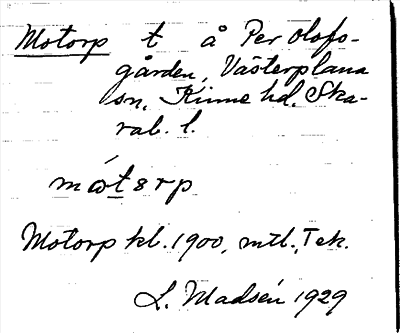 Motorp t å Per Olofs-
gården, Västerplana
sn, Kinne hd. Ska-
rab. l.
mótərp
Motorp kl. 1900, mtl., Tek.
L. Madsén 1929